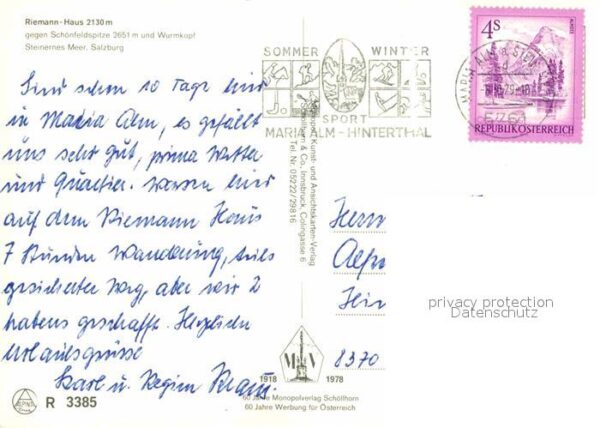 Riemann-Haus 2130 m
gegen Schönfeldspitze 2651 m und Wurmkopf
Steinernes Meer, Salzburg
Sind schon 10 Tage hier
in Maria Alm, es gefällt
uns sehr gut, prima Wetter
und Quartier. waren hier
auf dem Riemann Haus
7 Stunden Wanderung, teils
gesicherter Weg, aber wir 2
habens geschafft. Herzlichen
Urlaubsgrüsse
Karl u. Regina
SOMMER WINTER
SPORT
MARIA ALM - HINTERTHAL
MARIA ALM
4S
REPUBLIK ÖSTERREICH
Kunst- und Ansichtskarten-Verlag
Schöllhorn & Co., Innsbruck, Colingasse 6
Tel. Nr. 05222/29816
Herrn
8370
privacy protection
Datenschutz
1918 1978
60 Jahre Monopolverlag Schöllhorn
60 Jahre Werbung für Österreich
R 3385